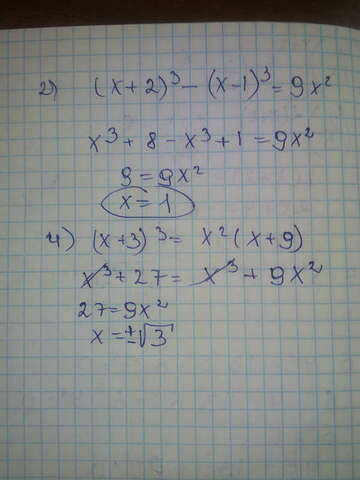 2) (x+2)³ - (x-1)³ = 9x²
x³ + 8 - x³ + 1 = 9x²
9 = 9x²
x = 1
4) (x+3)³ = x² (x+9)
x³ + 27 = x³ + 9x²
27 = 9x²
x = ±√3